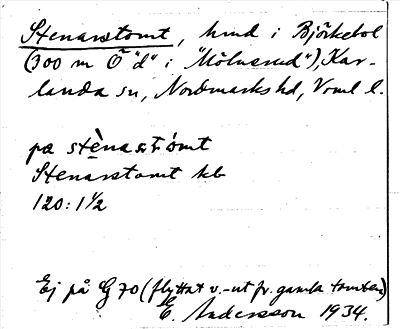 Stenarstomt, hmd i Björkebol
(300 m Ö "d" i "Mölnerud"), Kar-
landa sn, Nordmarks hd, Vrml l.
pa stènastòmt
Stenarstomt kb
120: 1 1/2
Ej på G 70 (flyttat v.-ut fr. gamla tomten)
E. Andersson 1934.